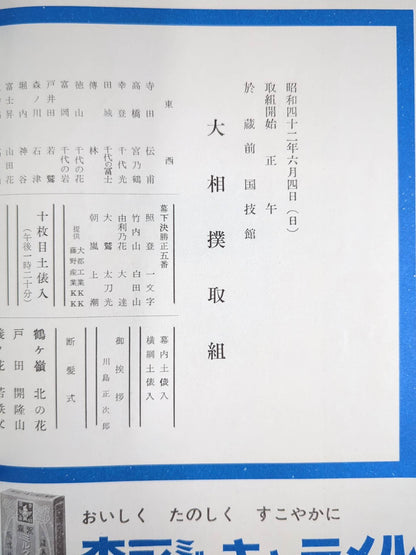 昭和四十二年六月四日(日)
取組開始 正午
於 蔵前国技館
大相撲取組
東 西
寺田 伝甫
高橋 宮乃鶴
幸登 千代光
田城 千代の富士
傳 林
徳山 千代の花
富岡 千代の岩
戸井田 若鷲
森ノ川 石津
堀内 神谷
富士昇 山田花
幕下決勝正五番
照登 一文字
竹内山 白田山
由利乃花 大達
大鷲 太刀光
朝嵐 上潮
提供 大部工業KK
藤野産業KK
十枚目土俵入
(午後一時二十分)
幕内土俵入
横綱土俵入
御挨拶
川島正次郎
断髪式
鶴ヶ嶺 北の花
戸田 開隆山
おいしく たのしく すこやかに
森永ミルクキャラメル